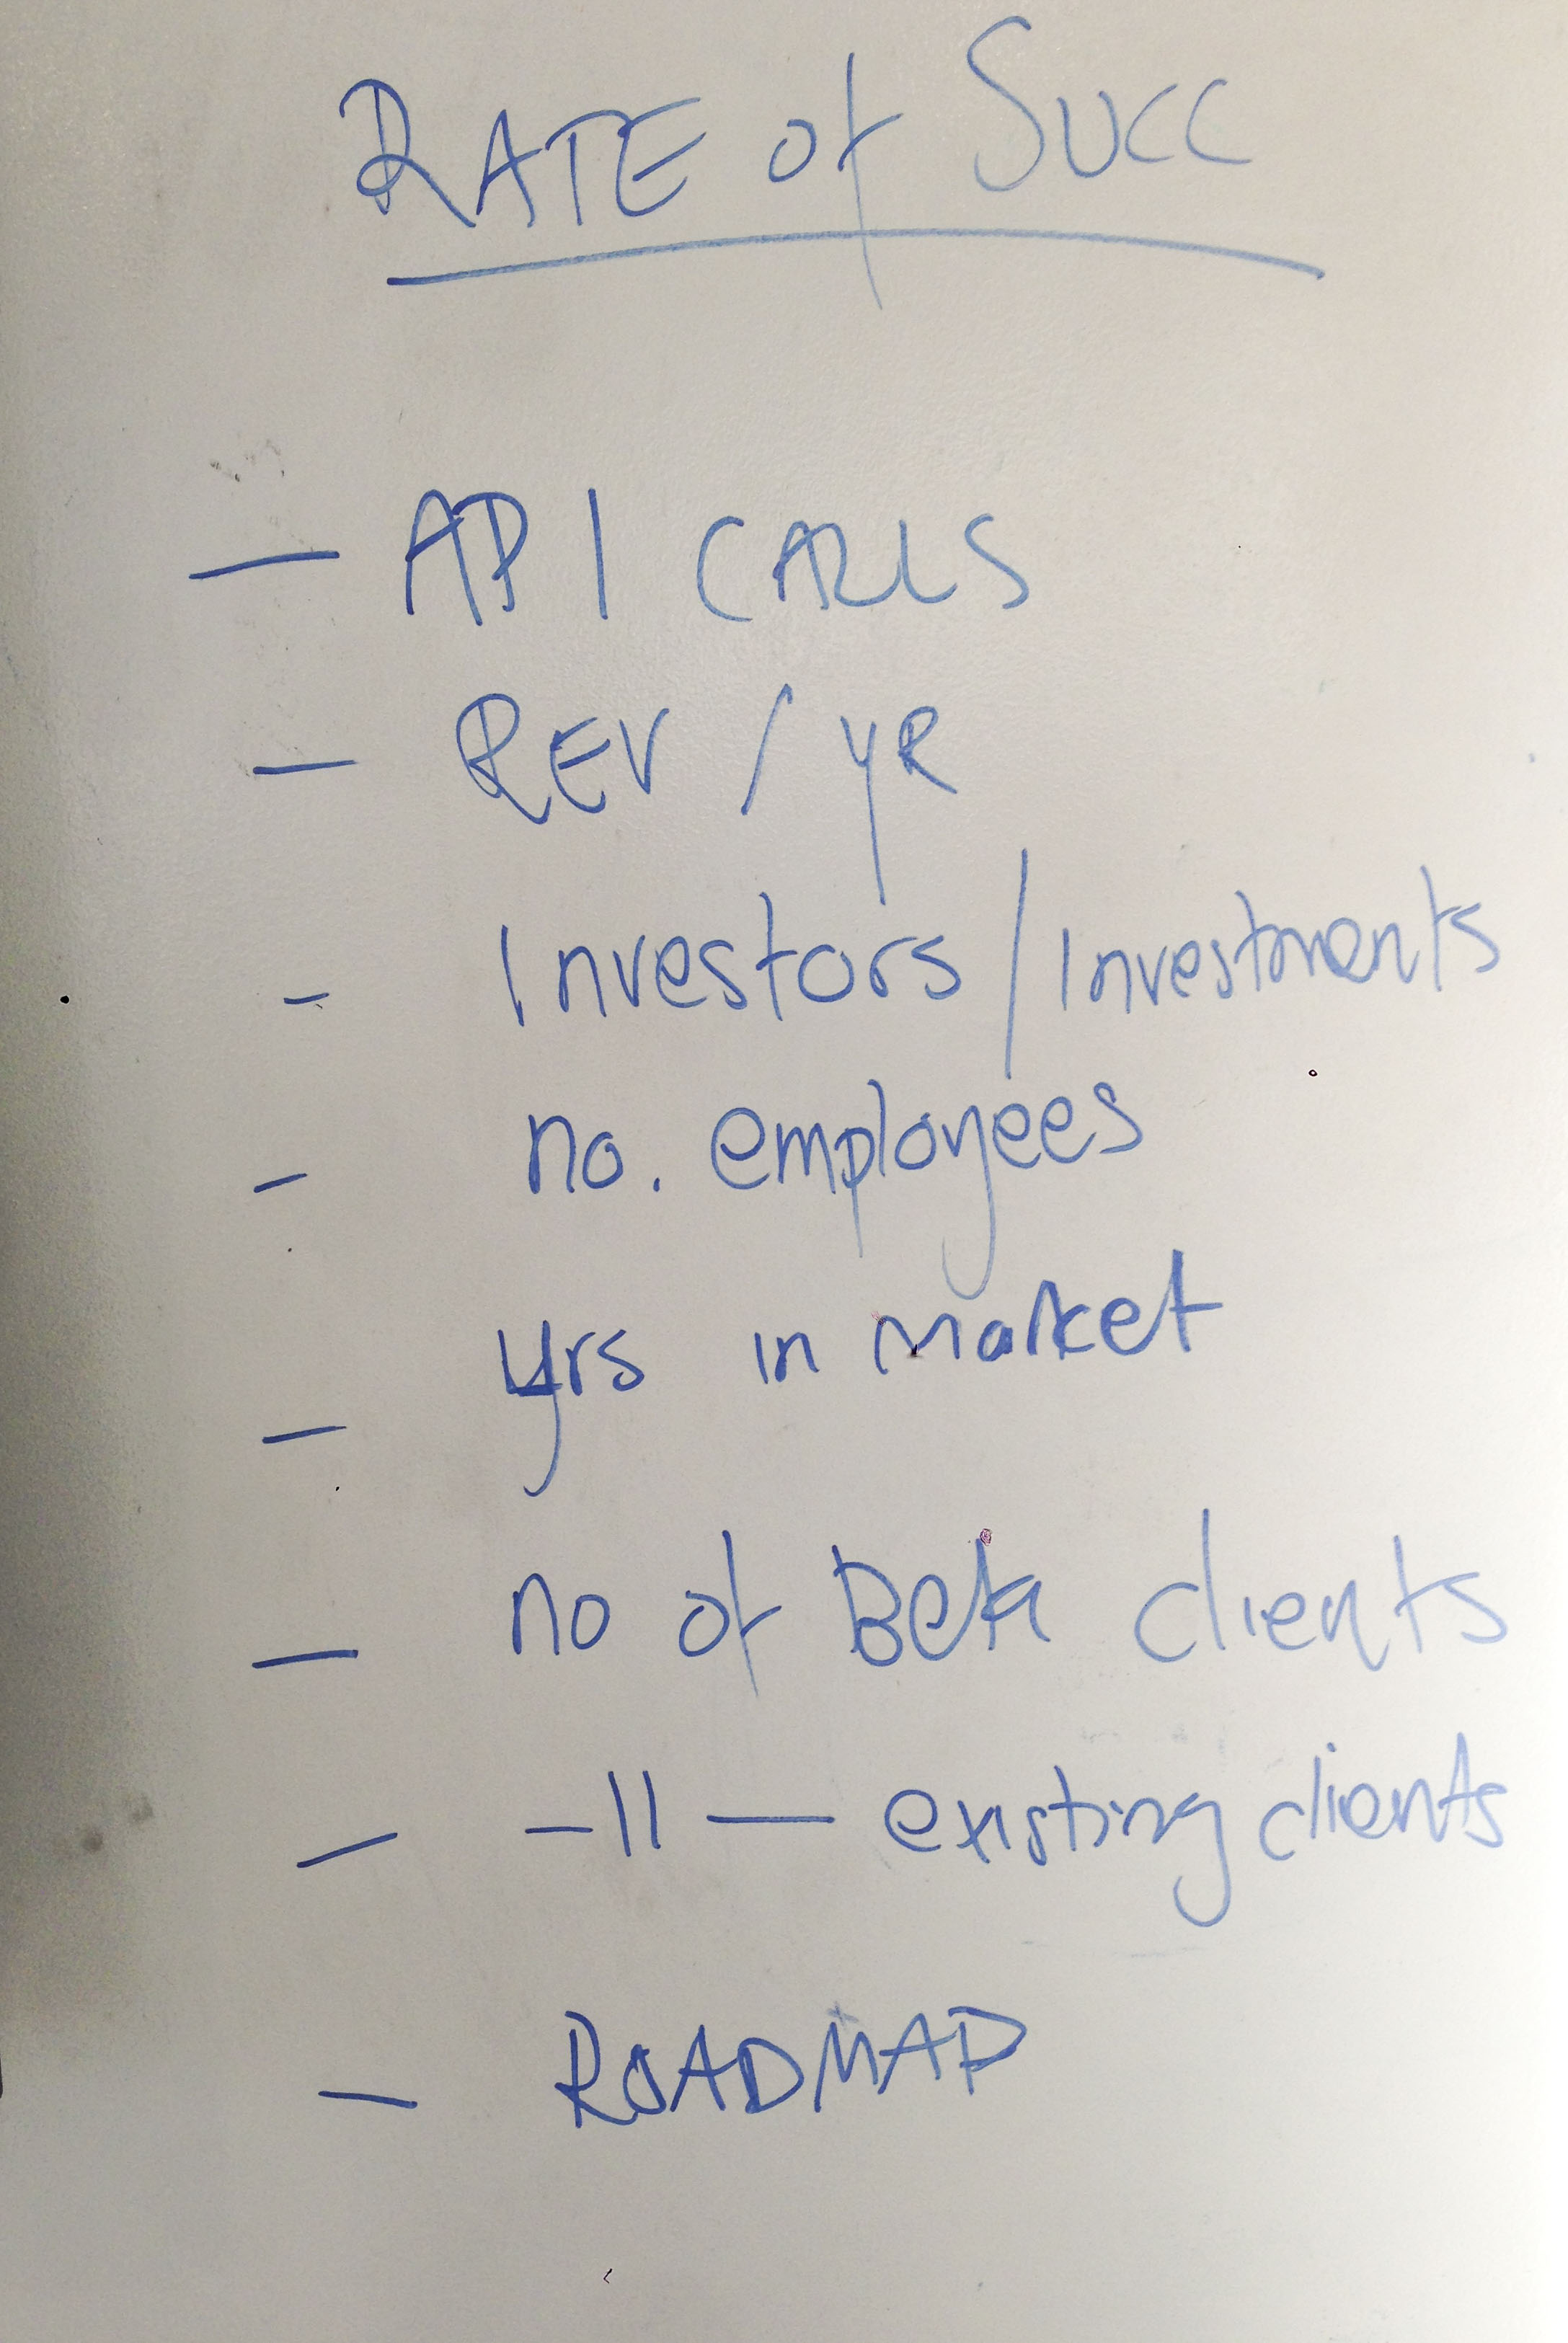 RATE of SUCC
- API CALLS
- REV / YR
- Investors / Investments
- no. employees
- yrs in market
- no of Beta clients
- -||- existing clients
- ROADMAP